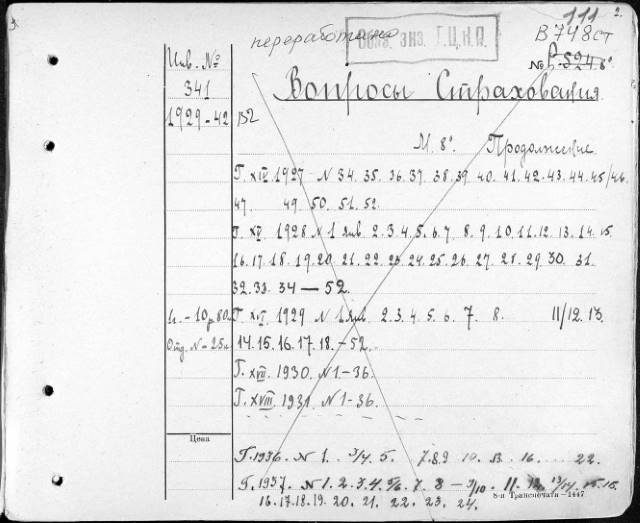 111 2.
переработано
Обяз. экз. Г.Ц.К.П.
В748ст
№ Р.524 8°
Инв. №
341
1929-42
Вопросы Страхования
В2
М. 8°. Продолжение
Г. XIV. 1927 - N 34. 35. 36. 37. 38. 39. 40. 41. 42. 43. 44. 45/46.
47. 49. 50. 51. 52.
Г. XV. 1928 N 1 янв 2. 3. 4. 5. 6. 7. 8. 9. 10. 11. 12. 13. 14. 15.
16. 17. 18. 19. 20. 21. 22. 23. 24. 25. 26. 27. 28. 29. 30. 31.
32. 33. 34 — 52.
Ц. - 10р 80к Г. XVI 1929 N 1 янв 2. 3. 4. 5. 6. 7. 8. 11/12. 13.
Отд. N - 25к 14. 15. 16. 17. 18. - 52.
Г. XVII. 1930. N 1. - 36.
Г. XVIII. 1931. N 1 - 36.
Цена
Г. 1936. N 1. 3/4. 5. 7. 8. 9. 10. 13. 16. 22.
Г. 1937. N 1. 2. 3. 4. 5/6. 7. 8 - 9/10. 11. 12. 13/14. 15.
8-я Транспечати—1447
16. 17. 18. 19. 20. 21. 22. 23. 24.